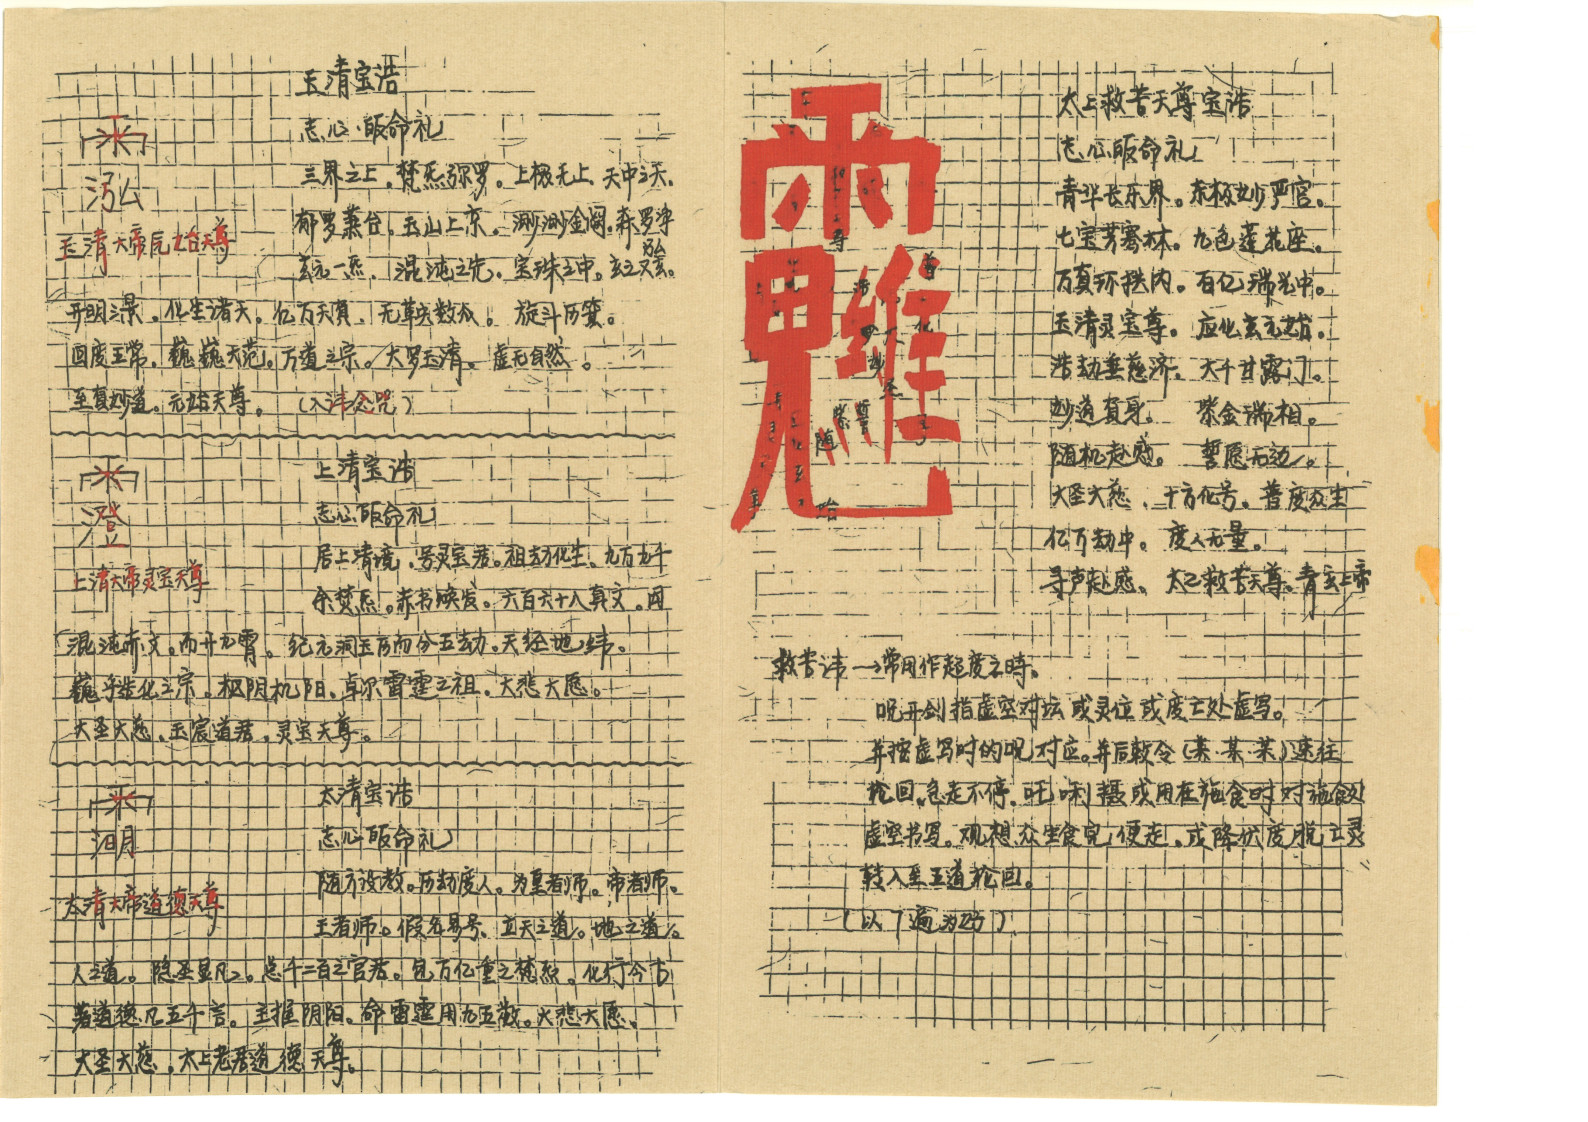 玉清宝浩
志心皈命礼
三界之上。梵炁弥罗。上极无上。天中之天。
郁罗萧台。玉山上京。渺渺金阙。森罗净
泓
玄元一炁。混沌之先。宝珠之中。玄之又玄。
开明三景。化生诸天。亿万天真。无鞅数众。旋斗历箕。
回度五常。巍巍大范。万道之宗。大罗玉清。虚无自然。
至真妙道。元始天尊。（入讳念咒）
泓
玉清大帝元始天尊
上清宝诰
志心皈命礼
居上清境。号灵宝君。祖劫化生。九万九千
余梵炁。赤书焕发。六百六十八真文。因
混沌赤文。而开九霄。纪元洞玉历而分五劫。天经地纬。
巍乎造化之宗。枢阴机阳。卓尔雷霆之祖。大悲大愿。
大圣大慈。玉宸道君。灵宝天尊。
澄
上清大帝灵宝天尊
太清宝诰
志心皈命礼
随方设教。历劫度人。为皇者师。帝者师。
王者师。假名易号。立天之道。地之道。
人之道。隐圣显凡。总千二百之官君。包万亿重之梵炁。化行今古
著道德凡五千言。主握阴阳。命雷霆用九五数。大悲大愿。
大圣大慈。太上老君道德天尊。
太清大帝道德天尊
太上救苦天尊宝诰
志心皈命礼
青华长乐界。东极妙严宫。
七宝芳骞林。九色莲花座。
万真环拱内。百亿瑞光中。
玉清灵宝尊。应化玄元始。
浩劫垂慈济。大千甘露门。
妙道真身。紫金瑞相。
随机赴感。誓愿无边。
大圣大慈。十方化号。普度众生
亿万劫中。度人无量。
寻声赴感。太乙救苦天尊。青玄上帝
救苦讳→常用作超度之時。
咒开剑指虚空对坛或灵位或度亡处虚写。
并按虚写时的咒对应。并后敕令（某.某.某）速往
轮回。急走不停。吒唎摄或用在施食时对施食处
虚空书写。观想众生食完便走。或降伏度脱亡灵
转入至五道轮回。
（以7遍为好）